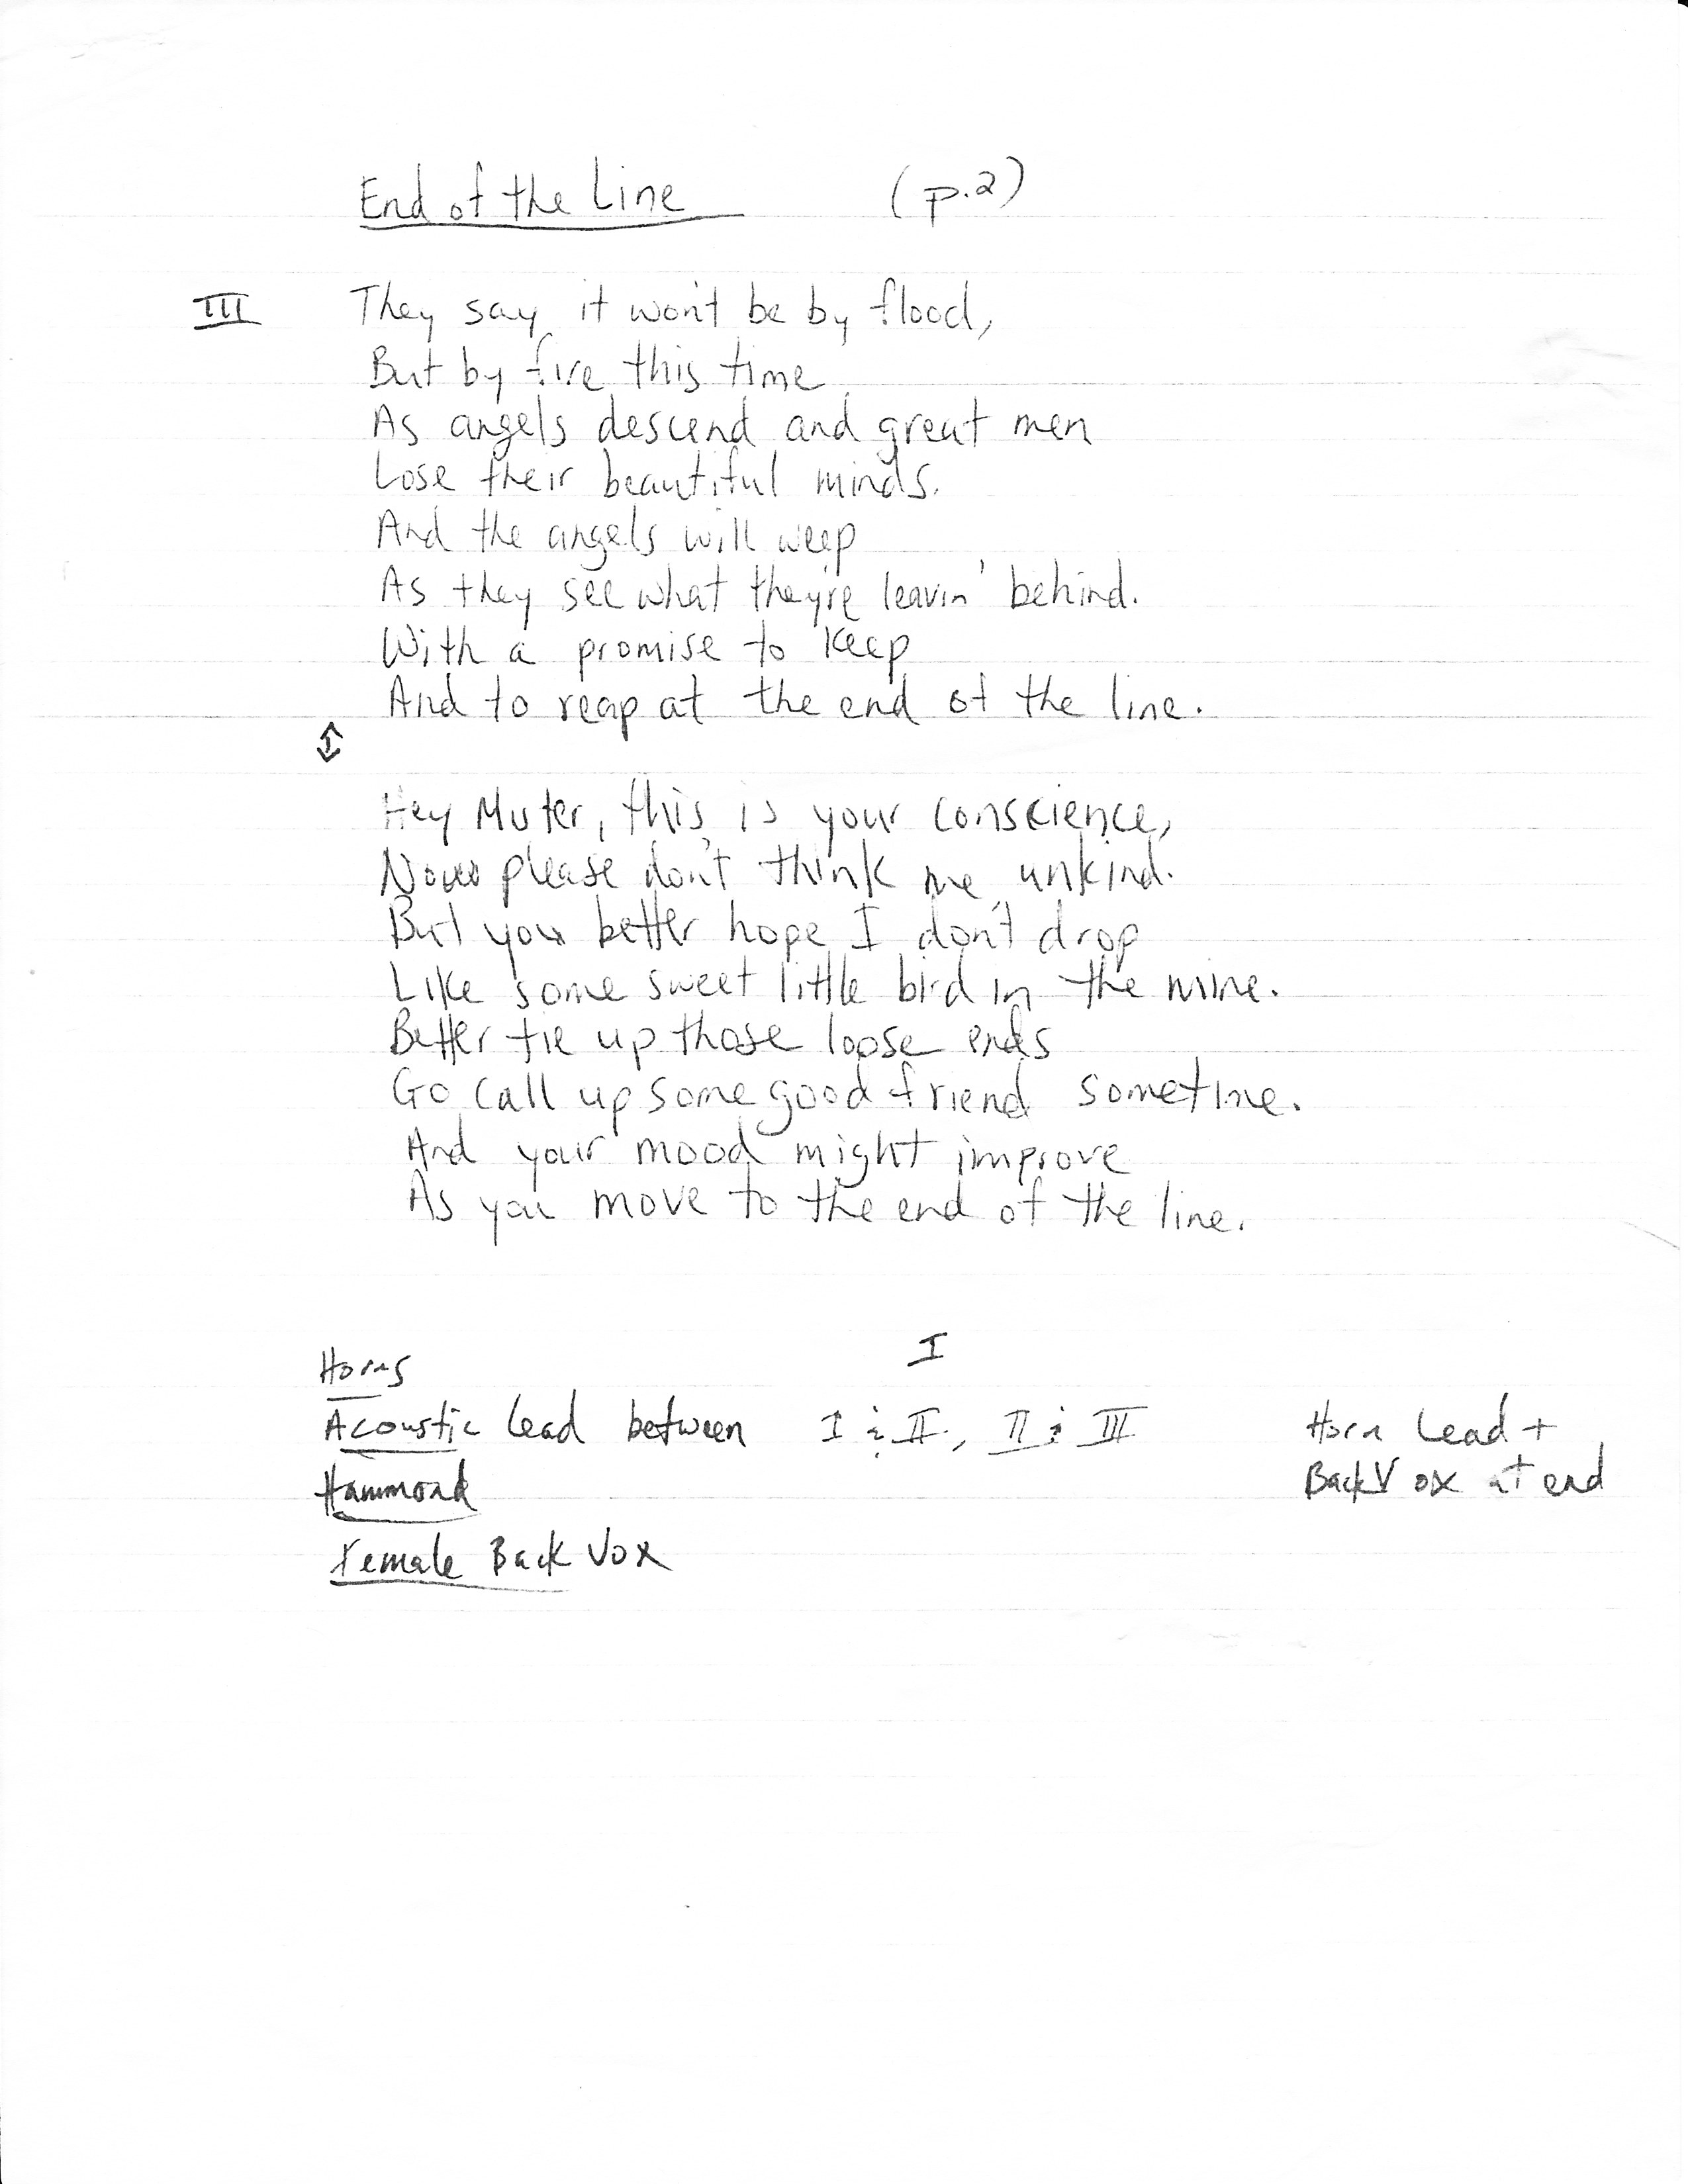 End of the Line (p.2)
III They say it won't be by flood,
But by fire this time
As angels descend and great men
Lose their beautiful minds.
And the angels will weep
As they see what they're leavin' behind.
With a promise to keep
And to reap at the end of the line.
Hey Mister, this is your conscience,
Now please don't think me unkind.
But you better hope I don't drop
Like some sweet little bird in the mine.
Better tie up those loose ends
Go call up some good friend sometime.
And your mood might improve
As you move to the end of the line.
I
Horns
Acoustic lead between I & II, II & III
Horn Lead +
Back Vox at end
Hammond
Female Back Vox